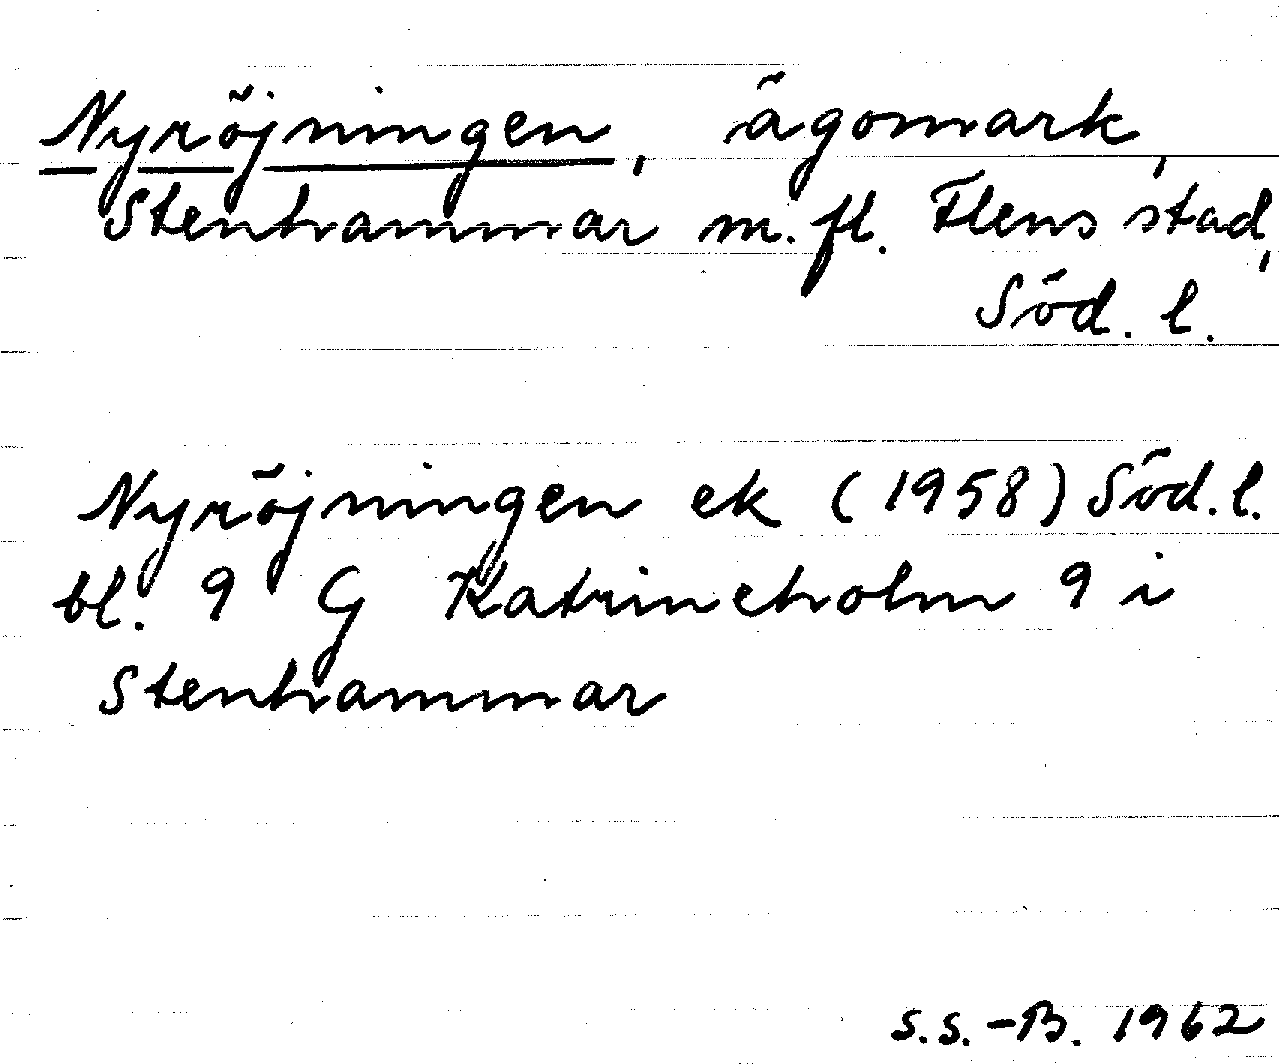 Nyröjningen, ägomark,
Stenhammar m. fl. Flens stad,
Söd. l.
Nyröjningen ek (1958) Söd. l.
bl. 9 G Katrineholm 9 i
Stenhammar
S.S.-B. 1962